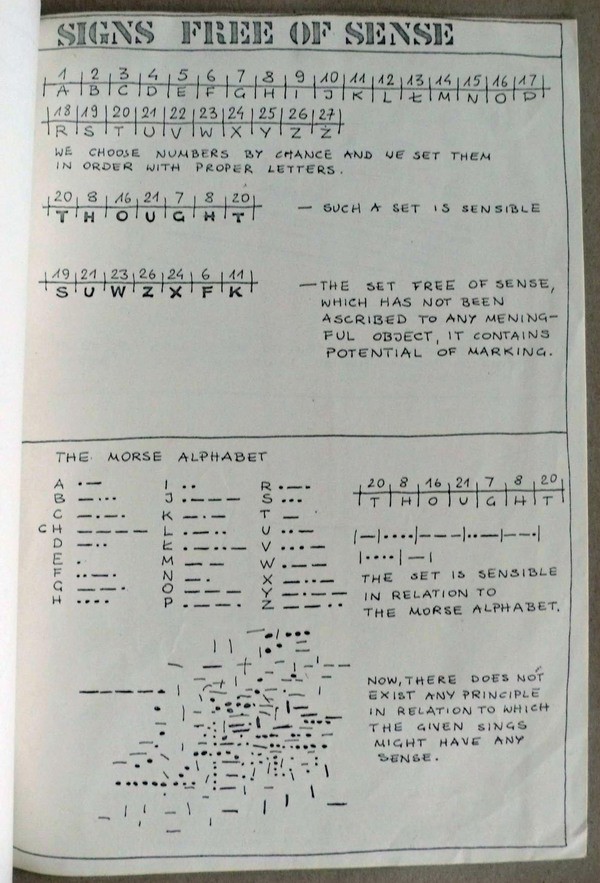 SIGNS FREE OF SENSE
1 2 3 4 5 6 7 8 9 10 11 12 13 14 15 16 17
A B C D E F G H I J K L Ł M N O P
18 19 20 21 22 23 24 25 26 27
R S T U V W X Y Z Ż
WE CHOOSE NUMBERS BY CHANCE AND WE SET THEM
IN ORDER WITH PROPER LETTERS.
20 8 16 21 7 8 20
T H O U G H T
— SUCH A SET IS SENSIBLE
19 21 23 26 24 6 11
S U W Z X F K
— THE SET FREE OF SENSE,
WHICH HAS NOT BEEN
ASCRIBED TO ANY MENING-
FUL OBJECT, IT CONTAINS
POTENTIAL OF MARKING.
THE MORSE ALPHABET
A ·—
B —···
C —·—·
CH ————
D —··
E ·
F ··—·
G ——·
H ····
I ··
J ·———
K —·—
L ·—··
Ł ·—··—
M ——
N —·
O ———
P ·——·
R ·—·
S ···
T —
U ··—
V ···—
W ·——
X —··—
Y —·——
Z ——··
20 8 16 21 7 8 20
T H O U G H T
|—|····|———|··—|——·|
|····|—|
THE SET IS SENSIBLE
IN RELATION TO
THE MORSE ALPHABET.
NOW, THERE DOES NOT
EXIST ANY PRINCIPLE
IN RELATION TO WHICH
THE GIVEN SINGS
MIGHT HAVE ANY
SENSE.